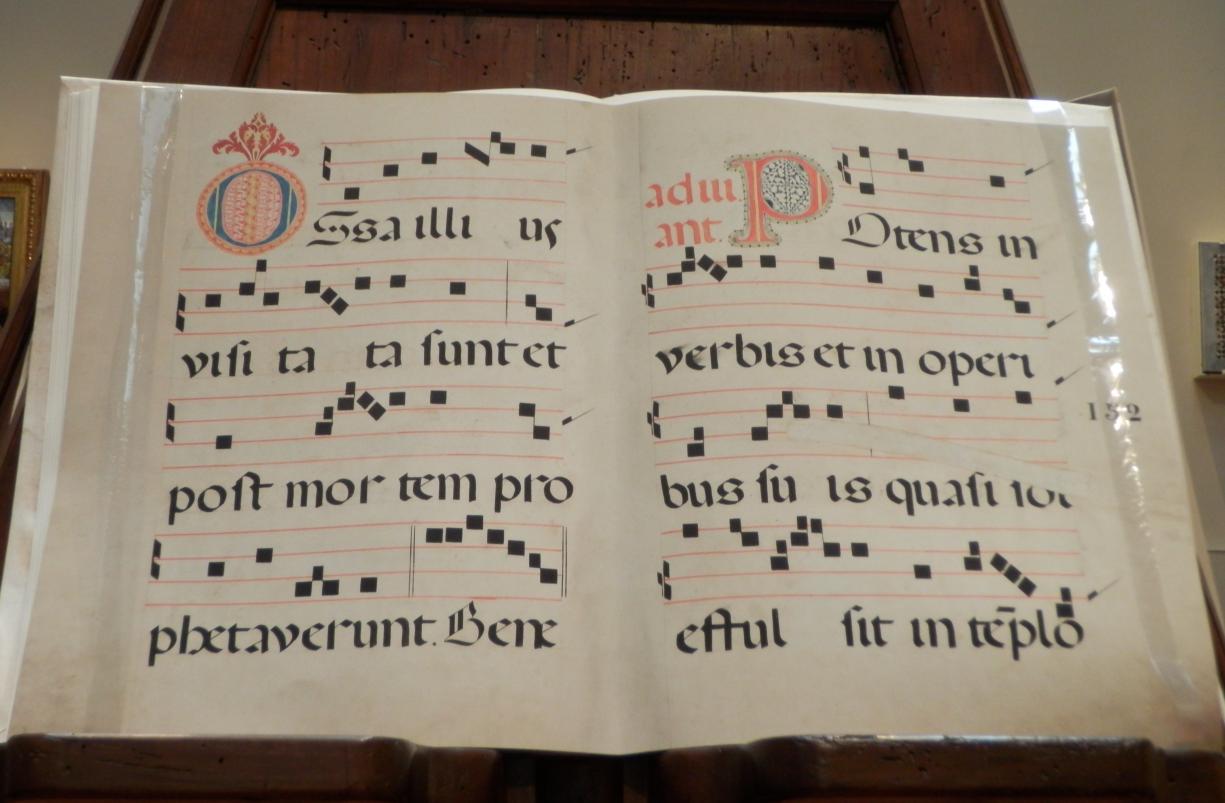 OSsa illi us
visi ta ta sunt et
post mor tem pro
phetaverunt. Bene
ad ui.
ant.
POtens in
verbis et in operi
bus su is quasi
efful sit in tēplo
132